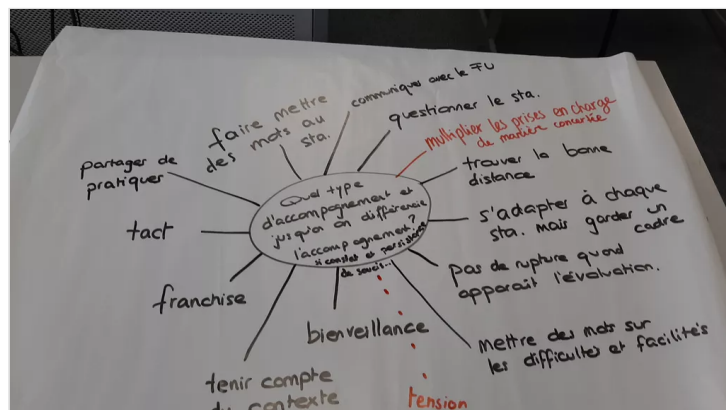 Quel type
d'accompagnement et
jusqu'où on différencie
l'accompagnement?
si constat et persistance
de soucis...
communiquer avec le FU
questionner le sta.
multiplier les prises en charge
de manière concertée
trouver la bonne
distance
s'adapter à chaque
sta. mais garder un
cadre
pas de rupture quand
apparaît l'évaluation.
mettre des mots sur
les difficultés et facilités
tension
bienveillance
tenir compte
du contexte
franchise
tact
partager de
pratiques
faire mettre
des mots au
sta.